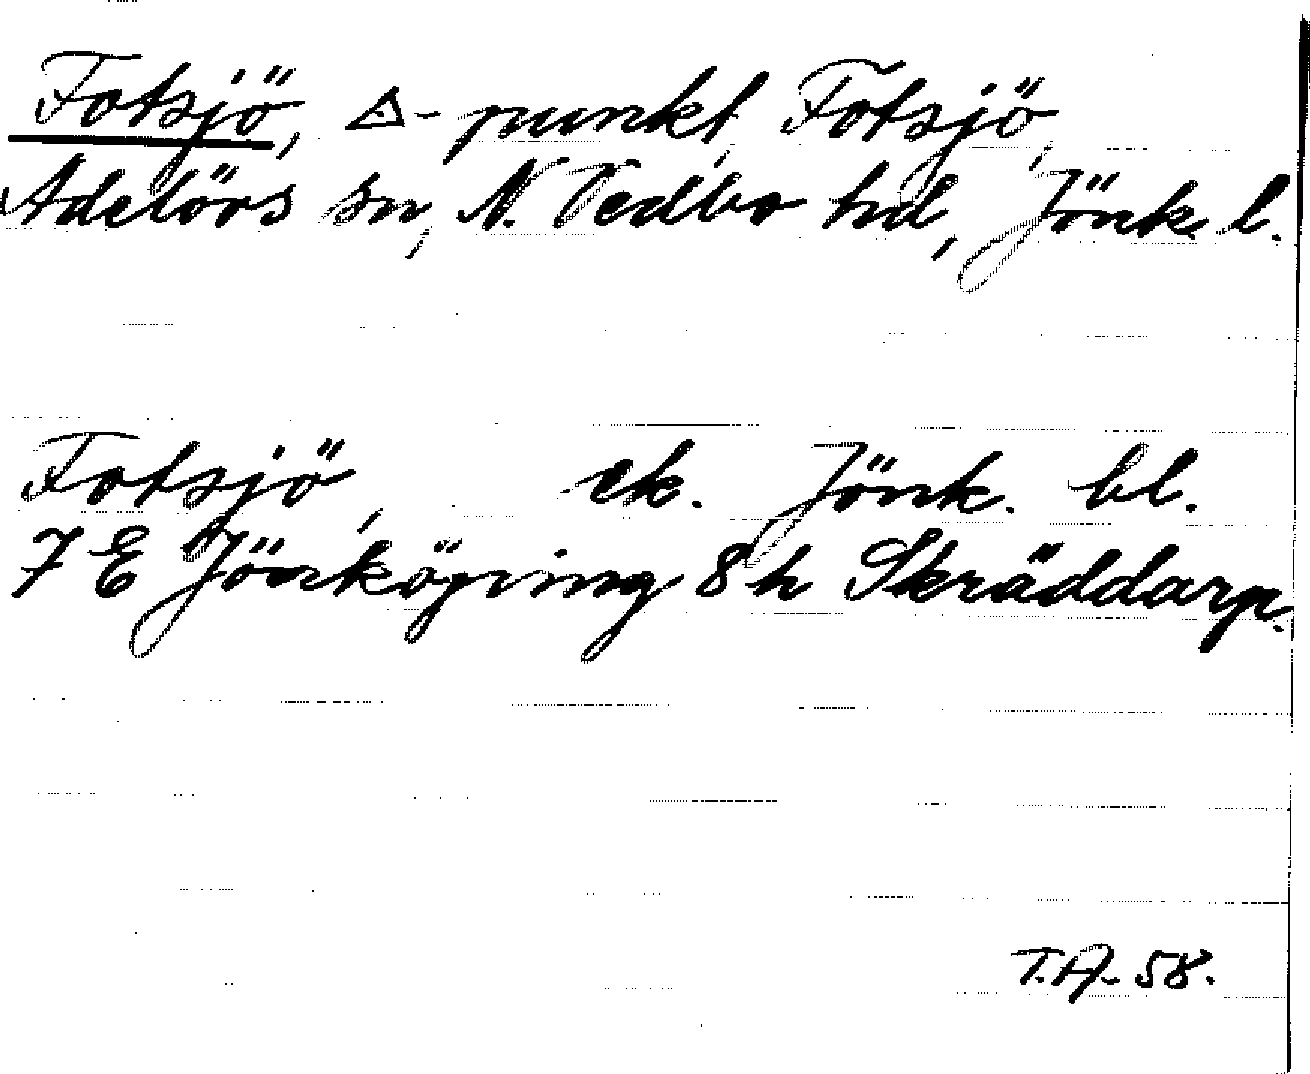 Fotsjö, △-punkt, Fotsjö,
Adelövs sn, N. Vedbo hd, Jönk. l.
Fotsjö, ek. Jönk. bl.
7 E Jönköping 8 h Skräddarp.
T.A. 58.